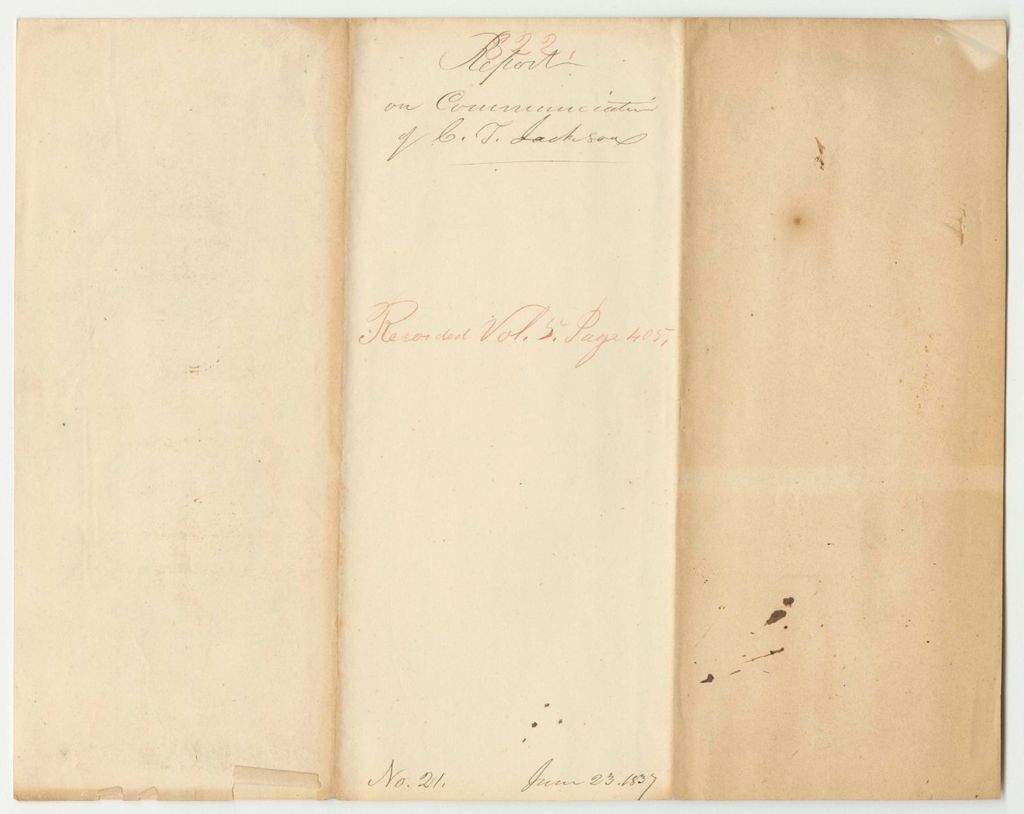 322.
Report
on Communication
of C. T. Jackson
Recorded Vol. 5. Page 405,
No. 21. June 23. 1837